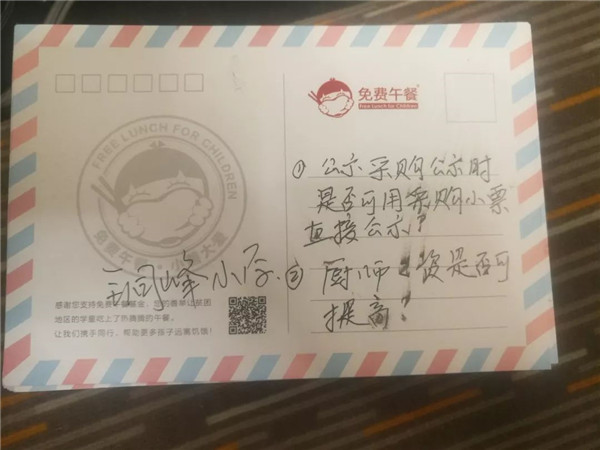 免费午餐
Free Lunch for Children
FREE LUNCH FOR CHILDREN
① 公示采购公示时
是否可用采购小票
直接公示?
峰小学
② 厨师 是否可
提高?
感谢您支持免费午餐基金,您的善举让贫困
地区的学童吃上了热腾腾的午餐。
让我们携手同行,帮助更多孩子远离饥饿!